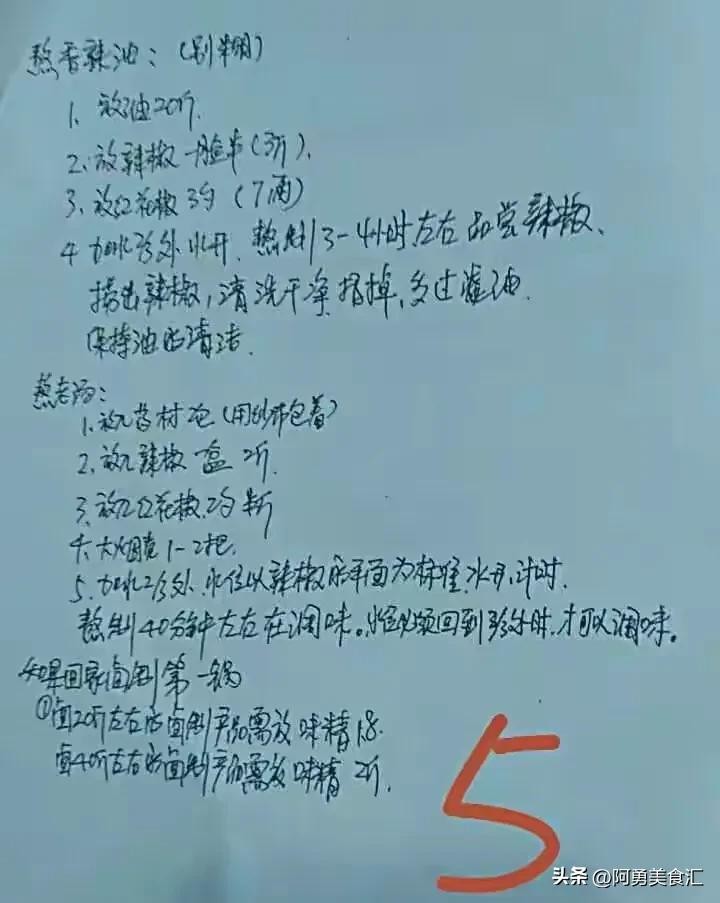 熬香辣油：（别糊）
1、放油20斤.
2、放辣椒一脸半（3斤）.
3、放红花椒3勺（7两）
4 加水 处水开、熬制3-4小时左右品尝辣椒、
捞出辣椒，清洗干净 掉，多过滤油.
保持油的清洁.
熬老汤：
1、放入药材 包（用纱布包着）
2、放入辣椒 盆 2斤.
3、放入红花椒 2勺 半斤
4、大烟 1-2把.
5、加水2/3处、水位以辣椒 平面为标准、水开计时.
熬制40分钟左右在调味。水位必须回到 时、才可以调味。
如果回家卤制第一锅
①卤20斤左右的卤制产品需放味精1.8.
卤40斤左右的卤制产品需放味精 2斤.
5
头条 @阿勇美食汇